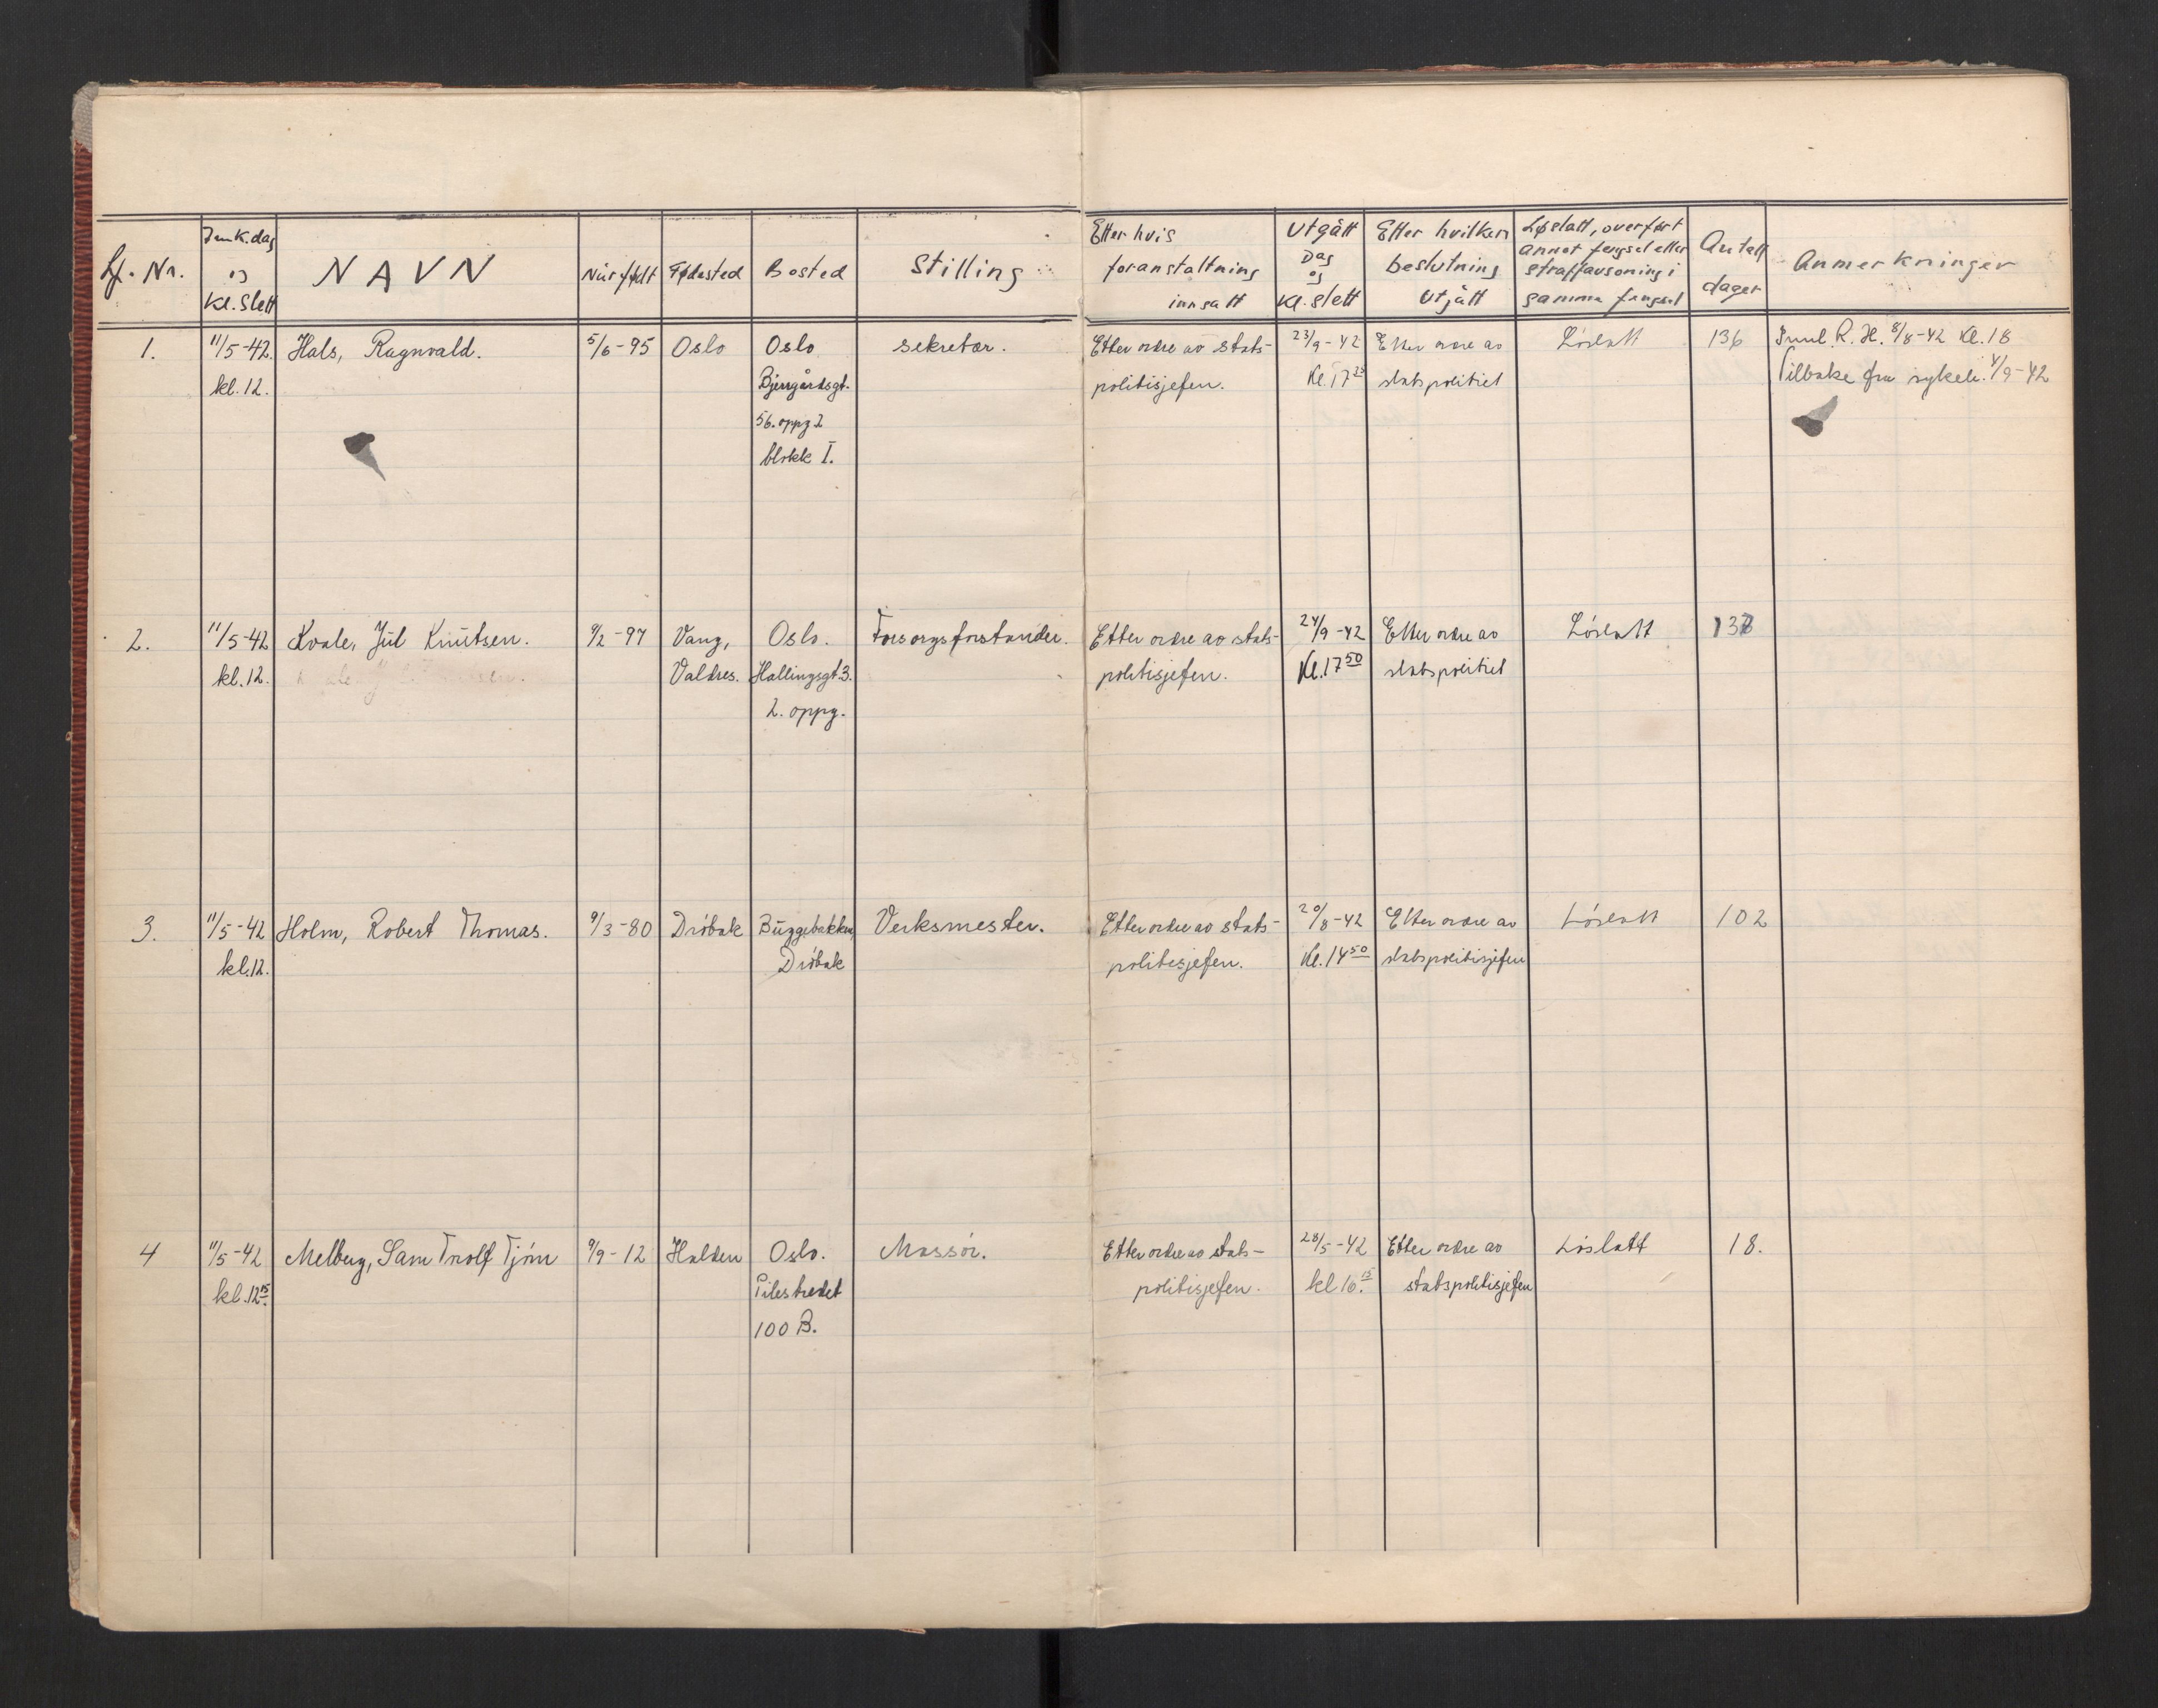 Lf. Nr.
Innk. dag
og
Kl. Slett
NAVN
Når født
Fødested
Bosted
Stilling
Etter hvis
foranstaltning
innsatt
Utgått
Dag
og
Kl. slett
Etter hvilken
beslutning
utgått
Løslatt, overført
annet fengsel eller
straffavsoning i
samme fengsel
Antall
dager
Anmerkninger
1. 11/5-42. Hals, Ragnvald. 5/6-95 Oslo Oslo Sekretær. Etter ordre av Stats- 23/9-42 Etter ordre av Løslatt 136 Innl. R. H. 8/8-42 Kl. 18
kl. 12. Bjerrgårdsgt. politisjefen. Kl. 17 statspolitiet Tilbake fra sykeh. 4/9-42
56. oppg 2
blokk I.
2. 11/5-42 Kvale, Jul Knutsen. 9/2-97 Vang, Oslo. Forsorgsforstander. Etter ordre av stats- 24/9-42 Etter ordre av Løslatt 137
kl. 12. Valdres. Hallingsgt. 3. politisjefen. Kl. 17 50 statspolitiet
2. oppg.
3. 11/5-42 Holm, Robert Thomas. 9/3-80 Drøbak Buggebakken, Verksmester. Etter ordre av stats- 20/8-42 Etter ordre av Løslatt 102
kl. 12. Drøbak politisjefen. Kl. 14 50 statspolitisjefen
4 11/5-42 Melberg, Sam Trolf Tjøm 9/9-12 Halden Oslo. Massør. Etter ordre av stats- 28/5-42 Etter ordre av Løslatt 18.
kl. 12 15. Pilestredet politisjefen. kl 16 15. statspolitisjefen
100 B.